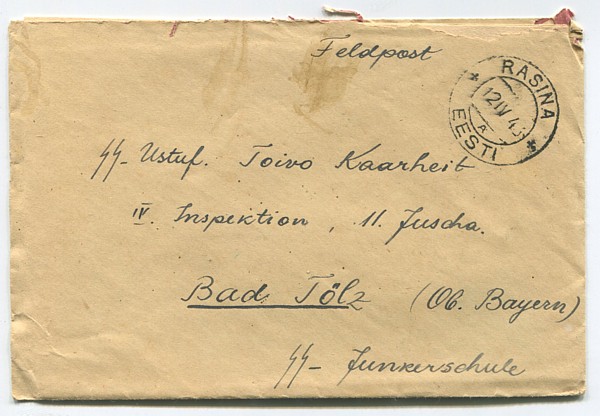 Feldpost
RASINA
12 IV 43
A
EESTI
SS-Ustuf. Toivo Kaarheit
IV. Inspektion, 11. Juscha.
Bad Tölz (Ob. Bayern)
SS-Junkerschule